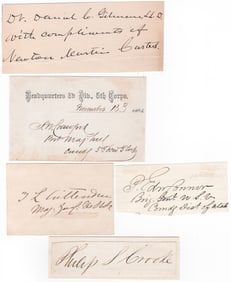 Dr. Daniel C. Gilman LL.D.
with compliments of
Newton Martin Curtis
Headquarters 3d Div., 5th Corps,
November 13 1864
S W Crawford
Brvt Maj Genl
Comdg 3d Div 5 Corps
T L Crittenden
Maj. Genl
P. Edw Connor
Brig Genl U S V
Comdg Dist of Utah
Philip S. Crooke